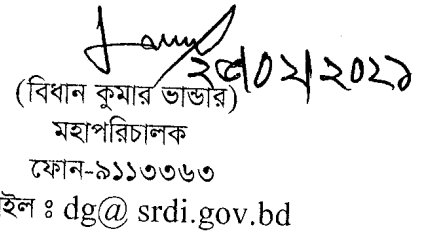 ০২/২০২১
(বিধান কুমার ভান্ডার)
মহাপরিচালক
ফোন-৯১১৩৩৬৩
ইল ঃ dg@ srdi.gov.bd